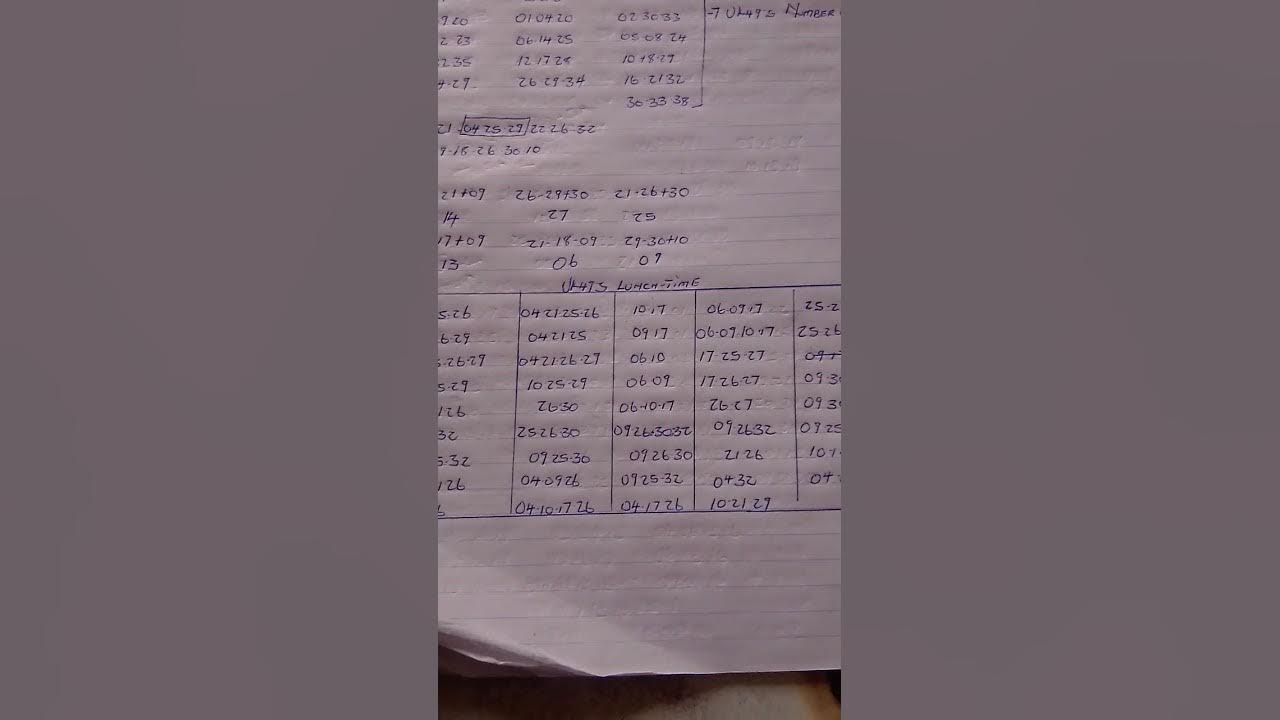 9 20 01 04 20 02 30 33 -7 UK49'S NUMBER
2 23 06.14 25 05 08 24
2.35 12 17 28 10 18.29
29 26 29.34 16 21 32
30.33.38
21 04 25.29 22 26.32
9.18.26 30 10
21+09 26-29+30 21-26+30
14 27 25
17+09 21-18-09 29-30+10
13 06 09
UK49'S LUNCH-TIME
5.26 04 21.25.26 10.17 06.09.17 25.2
6.29 04 21 25 09 17 06.09.10.17 25 26
26.29 04 21 26.27 06 10 17.25.27
5.29 10 25.29 06 09 17 26.27 09.30
26 26 30 06.10.17 26.27 09 30
32 25 26 30 09 26.30 32 09 26 32 09 25
5.32 09 25.30 09 26 30 21 26 10.1
26 04.09 26 09 25.32 04 32 04
04.10.17 26 04.17 26 10.21 29